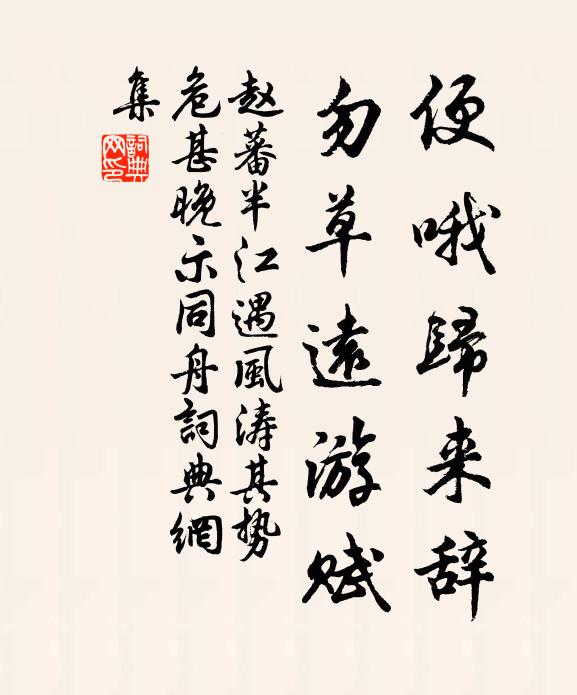 便哦歸来辞
勿草遠游赋
赵蕃半江遇風涛其势
危甚晚示同舟詞典網
集
詞典
网印